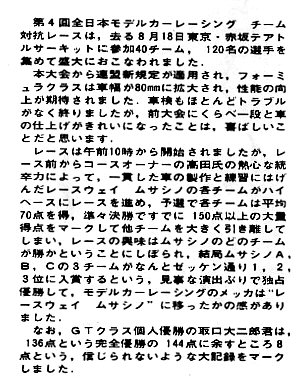 第4回全日本モデルカーレーシング チーム
対抗レースは，去る8月18日東京・赤坂テアト
ルサーキットに参加40チーム， 120名の選手を
集めて盛大におこなわれました．
本大会から連盟新規定が適用され，フォーミ
ュラクラスは車幅が80mmに拡大され，性能の向
上が期待されました．車検もほとんどトラブル
がなく終りましたが，前大会にくらべ一段と車
の仕上げがきれいになったことは，喜ばしいこ
とだと思います．
レースは午前10時から開始されましたが，レ
ース前からコースオーナーの高田氏の熱心な統
率力によって，一貫した車の製作と練習にはげ
んだレースウェイ ムサシノの各チームがハイ
ペースにレースを進め，予選で各チームは平均
70点を得，準々決勝ですでに 150点以上の大量
得点をマークして他チームを大きく引き離して
しまい，レースの興味はムサシノのどのチーム
が勝かということにしぼられ，結局ムサシノA，
B，Cの3チームがなんとゼッケン通り1，2，
3位に入賞するという，見事な演出ぶりで独占
優勝して，モデルカーレーシングのメッカは"レ
ースウェイ ムサシノ"に移ったかの感があり
ました．
なお，GTクラス個人優勝の取口大二郎君は，
136点という完全優勝の 144点に余すところ8
点という，信じられないような大記録をマーク
しました．